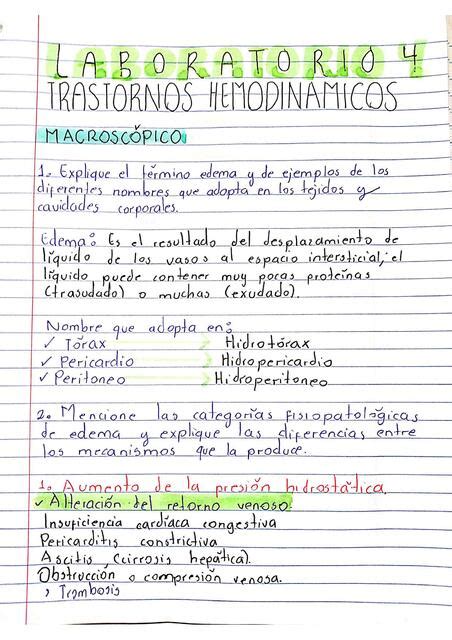 LABORATORIO 4
TRASTORNOS HEMODINAMICOS
MACROSCÓPICO
1. Explique el término edema y de ejemplos de los
diferentes nombres que adopta en los tejidos y
cavidades corporales.
Edema: Es el resultado del desplazamiento de
líquido de los vasos al espacio intersticial, el
líquido puede contener muy pocas proteínas
(trasudado) o muchas (exudado).
Nombre que adopta en:
✓ Tórax > Hidrotórax
✓ Pericardio > Hidropericardio
✓ Peritoneo > Hidroperitoneo
2. Mencione las categorías fisiopatológicas
de edema y explique las diferencias entre
los mecanismos que la produce.
1. Aumento de la presión hidrostática.
✓ Alteración del retorno venoso:
Insuficiencia cardíaca congestiva
Pericarditis constrictiva
Ascitis (cirrosis hepática).
Obstrucción o compresión venosa.
> Trombosis